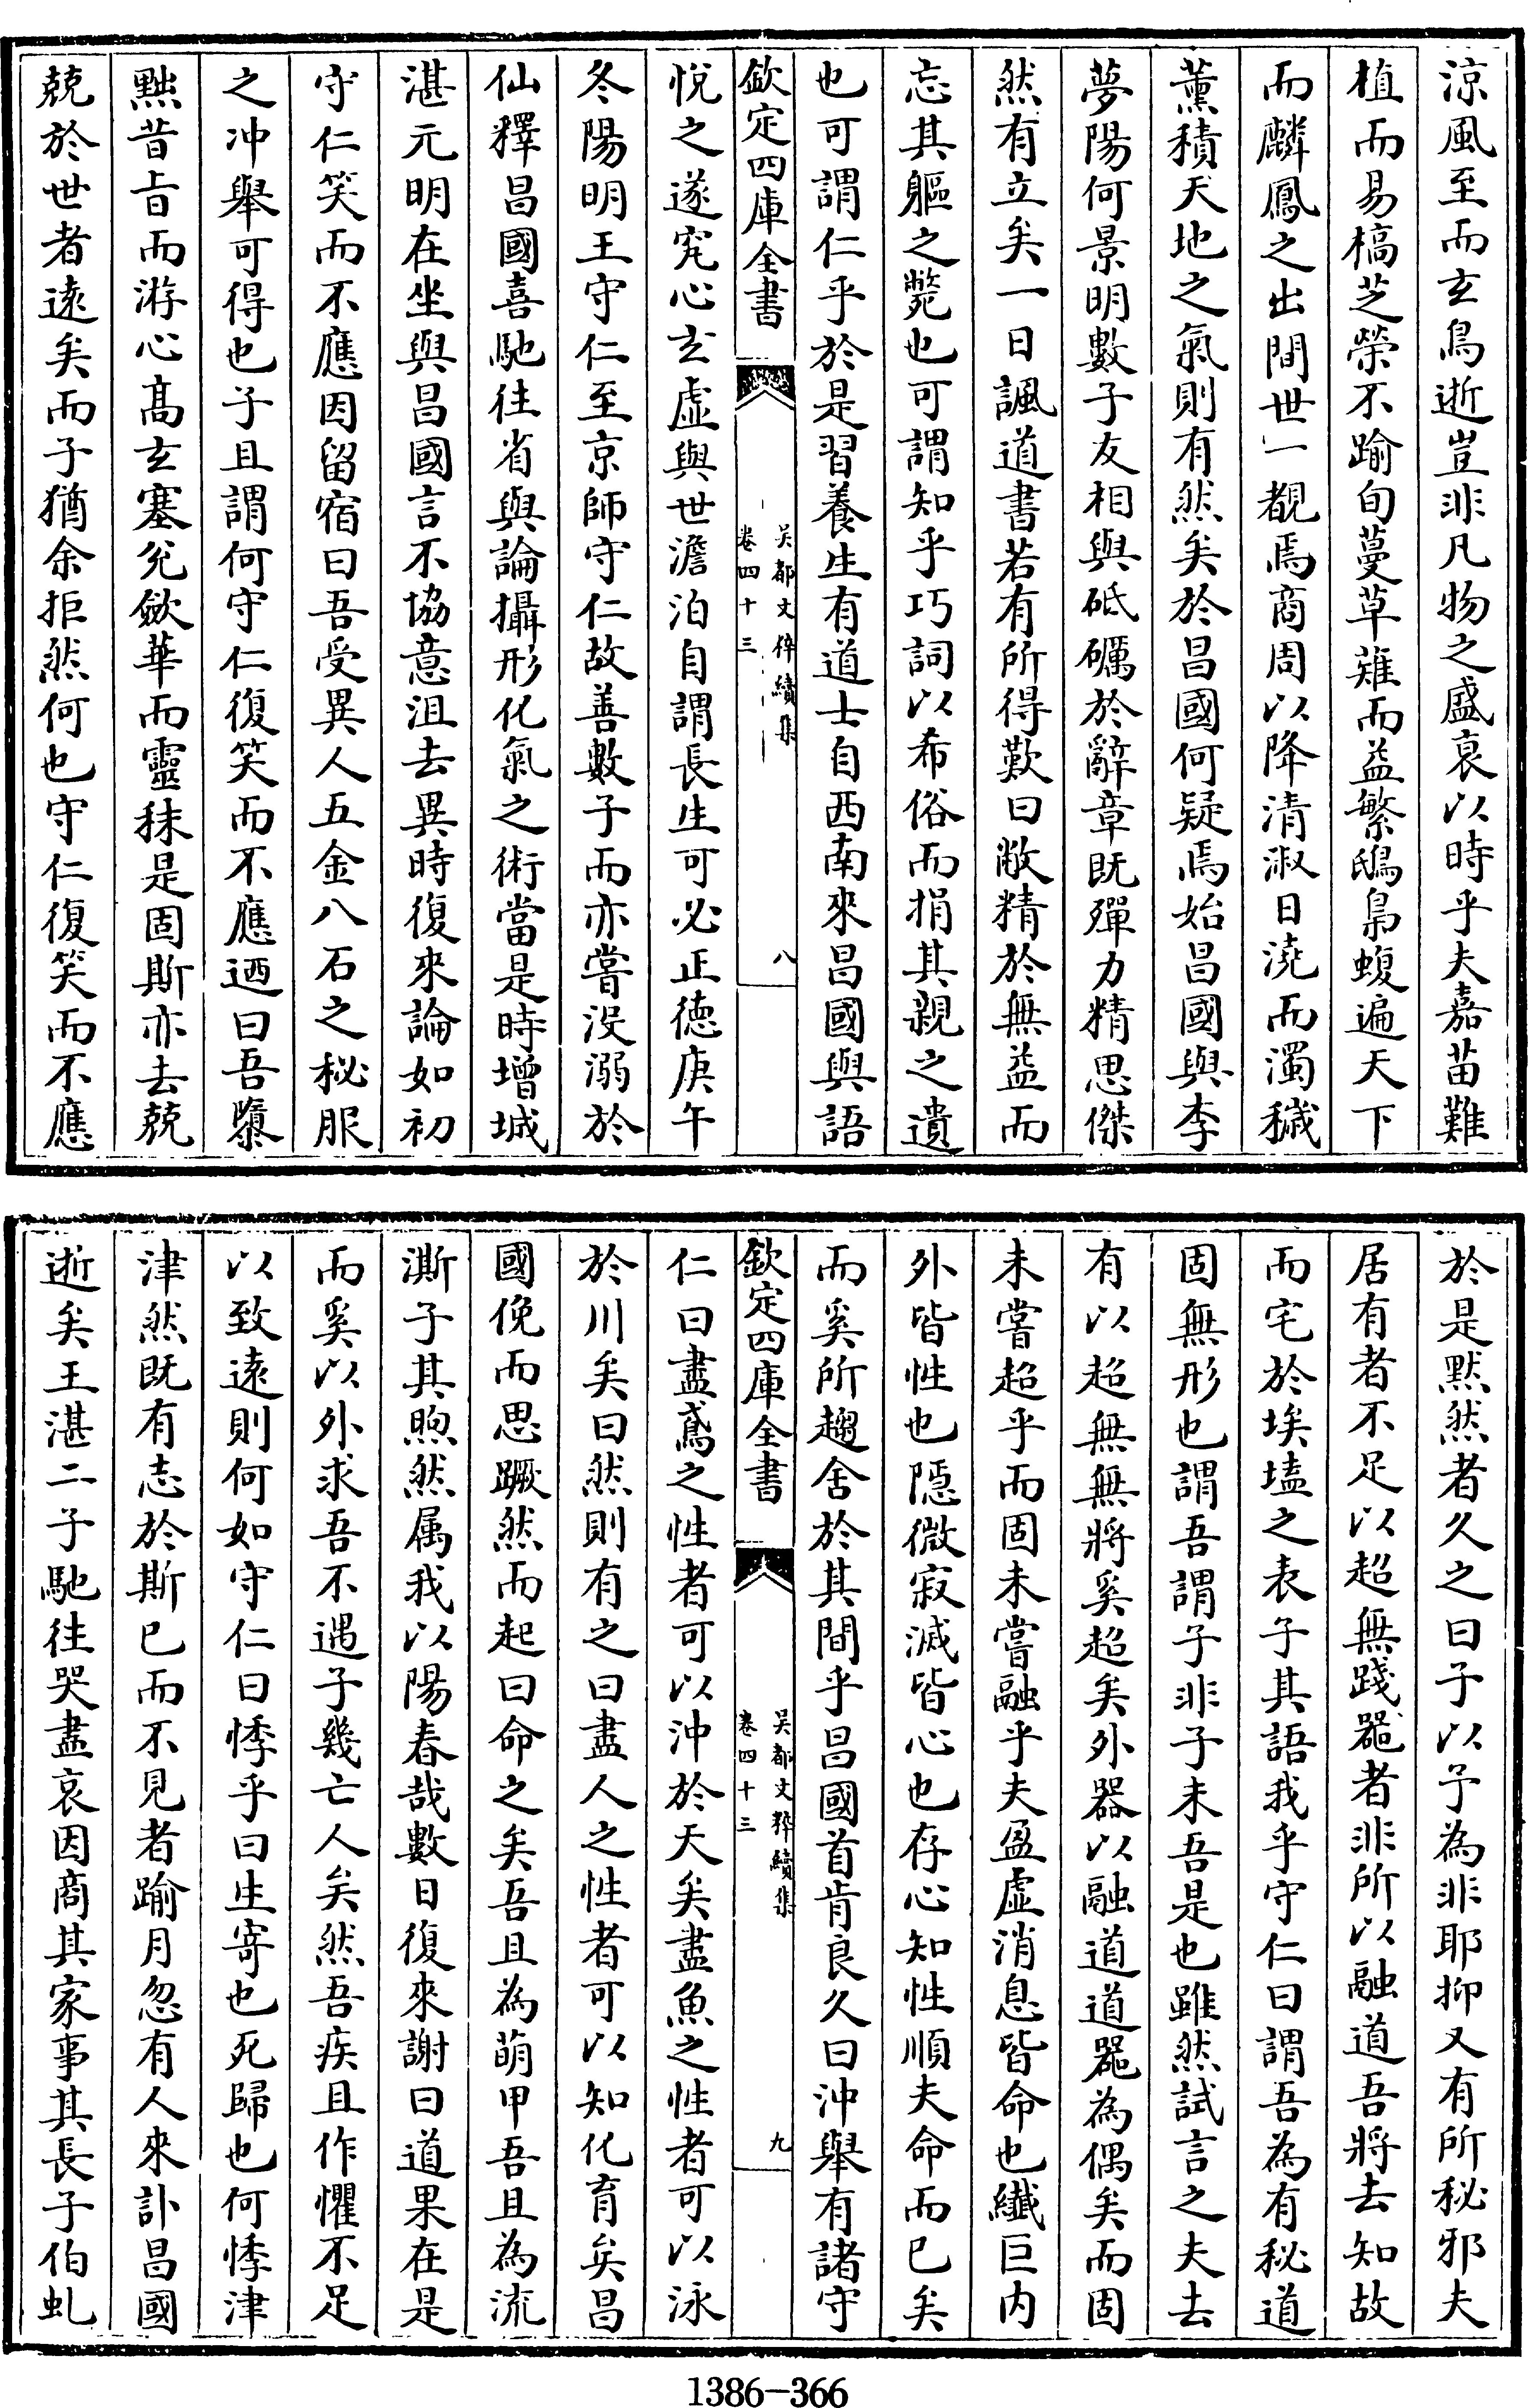 涼風至而玄鳥逝豈非凡物之盛衰以時乎夫嘉苗難
植而易槁芝榮不踰旬蔓草薙而益繁鴟梟蝮遍天下
而麟鳳之出間世一覩焉商周以降清淑日澆而濁穢
薰積天地之氣則有然矣於昌國何疑焉始昌國與李
夢陽何景明數子友相與砥礪於辭章既殫力精思傑
然有立矣一日諷道書若有所得歎曰敝精於無益而
忘其軀之斃也可謂知乎巧詞以希俗而捐其親之遺
也可謂仁乎於是習養生有道士自西南來昌國與語
欽定四庫全書
吳都文粹續集
卷四十三
八
悅之遂究心玄虛與世澹泊自謂長生可必正德庚午
冬陽明王守仁至京師守仁故善數子而亦嘗沒溺於
仙釋昌國喜馳往省與論攝形化氣之術當是時增城
湛元明在坐與昌國言不協意沮去異時復來論如初
守仁笑而不應因留宿曰吾受異人五金八石之秘服
之冲舉可得也子且謂何守仁復笑而不應迺曰吾隳
黜昔旨而游心高玄塞兊歛華而靈秣是固斯亦去兢
兢於世者遠矣而子猶余拒然何也守仁復笑而不應
於是默然者久之曰子以予為非耶抑又有所秘邪夫
居有者不足以超無踐器者非所以融道吾將去知故
而宅於埃壒之表子其語我乎守仁曰謂吾為有秘道
固無形也謂吾謂子非子未吾是也雖然試言之夫去
有以超無無將奚超矣外器以融道道器為偶矣而固
未嘗超乎而固未嘗融乎夫盈虛消息皆命也纖巨內
外皆性也隱微寂滅皆心也存心知性順夫命而已矣
而奚所趨舍於其間乎昌國首肯良久曰沖舉有諸守
欽定四庫全書
吳都文粹續集
卷四十三
九
仁曰盡鳶之性者可以沖於天矣盡魚之性者可以泳
於川矣曰然則有之曰盡人之性者可以知化育矣昌
國俛而思蹶然而起曰命之矣吾且為萌甲吾且為流
澌子其煦然属我以陽春哉數日復來謝曰道果在是
而奚以外求吾不遇子幾亡人矣然吾疾且作懼不足
以致遠則何如守仁曰悸乎曰生寄也死歸也何悸津
津然既有志於斯已而不見者踰月忽有人來訃昌國
逝矣王湛二子馳往哭盡哀因商其家事其長子伯虬
1386-366